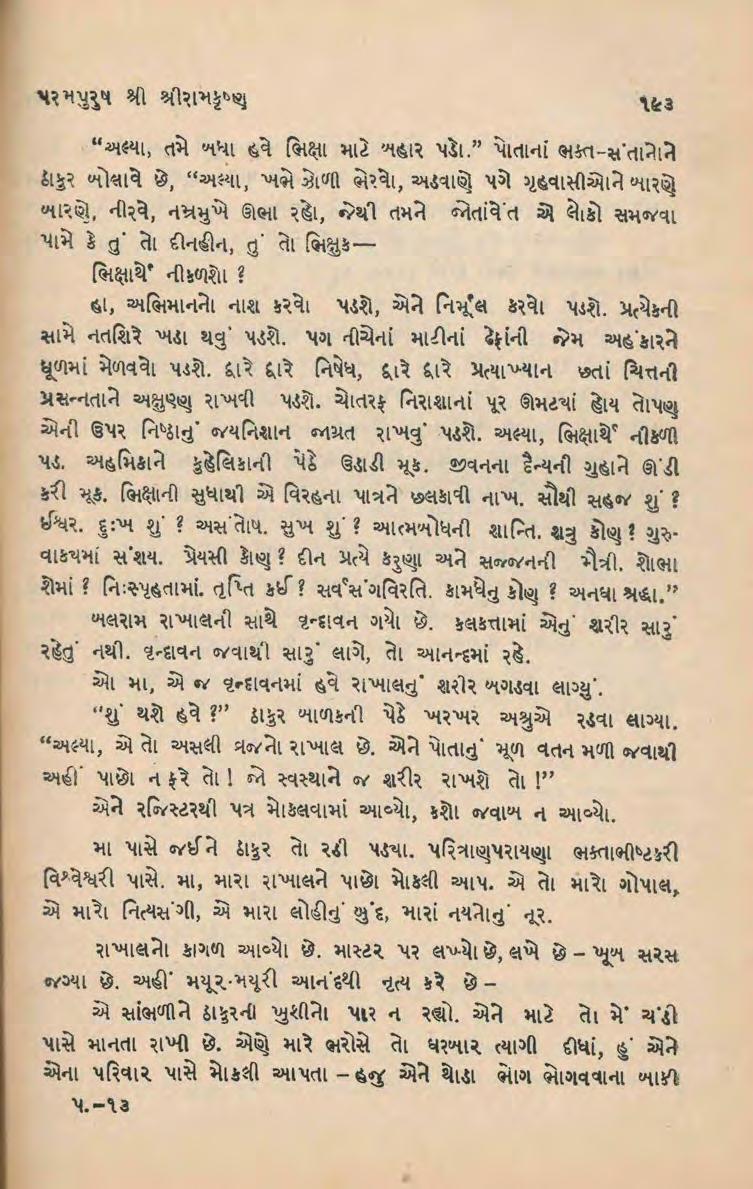 પરમપુરુષ શ્રી શ્રીરામકૃષ્ણ ૧૯૩
“અલ્યા, તમે બધા હવે ભિક્ષા માટે બહાર પડો.” પોતાનાં ભક્ત-સંતાનોને
ઠાકુર બોલાવે છે, “અલ્યા, ખભે ઝોળી ભેરવો, અડવાણે પગે ગૃહવાસીઓને બારણે
બારણે, નીરવે, નમ્રમુખે ઊભા રહો, જેથી તમને જોતાંવેંત એ લોકો સમજવા
પામે કે તું તો દીનહીન, તું તો ભિક્ષુક—
ભિક્ષાર્થે નીકળશો ?
હા, અભિમાનનો નાશ કરવો પડશે, એને નિર્મૂલ કરવો પડશે. પ્રત્યેકની
સામે નતશિરે ખડા થવું પડશે. પગ નીચેનાં માટીનાં ઢેફાંની જેમ અહંકારને
ધૂળમાં મેળવવો પડશે. દ્વારે દ્વારે નિષેધ, દ્વારે દ્વારે પ્રત્યાખ્યાન છતાં ચિત્તની
પ્રસન્નતાને અક્ષુણ્ણ રાખવી પડશે. ચોતરફ નિરાશાનાં પૂર ઊમટયાં હોય તોપણ
એની ઉપર નિષ્ઠાનું જયનિશાન જાગ્રત રાખવું પડશે. અલ્યા, ભિક્ષાર્થે નીકળી
પડ. અહમિકાને કુહેલિકાની પેઠે ઉડાડી મૂક. જીવનના દૈન્યની ગુહાને ઊંડી
કરી મૂક. ભિક્ષાની સુધાથી એ વિરહના પાત્રને છલકાવી નાખ. સૌથી સહજ શું ?
ઈશ્વર. દુઃખ શું ? અસંતોષ. સુખ શું ? આત્મબોધની શાન્તિ. શત્રુ કોણ ? ગુરુ-
વાકયમાં સંશય. પ્રેયસી કોણ ? દીન પ્રત્યે કરુણા અને સજ્જનની મૈત્રી. શોભા
શેમાં ? નિઃસ્પૃહતામાં. તૃપ્તિ કઈ ? સર્વસંગવિરતિ. કામધેનુ કોણ ? અનઘા શ્રદ્ધા.”
બલરામ રાખાલની સાથે વૃન્દાવન ગયો છે. કલકત્તામાં એનું શરીર સારું
રહેતું નથી. વૃન્દાવન જવાથી સારું લાગે, તો આનન્દમાં રહે.
ઓ મા, એ જ વૃન્દાવનમાં હવે રાખાલનું શરીર બગડવા લાગ્યું.
“શું થશે હવે ?” ઠાકુર બાળકની પેઠે ખરખર અશ્રુએ રડવા લાગ્યા.
“અલ્યા, એ તો અસલી વ્રજનો રાખાલ છે. એને પોતાનું મૂળ વતન મળી જવાથી
અહીં પાછો ન ફરે તો ! જો સ્વસ્થાને જ શરીર રાખશે તો !”
એને રજિસ્ટરથી પત્ર મોકલવામાં આવ્યો, કશો જવાબ ન આવ્યો.
મા પાસે જઈને ઠાકુર તો રડી પડયા. પરિત્રાણપરાયણા ભક્તાભીષ્ટકરી
વિશ્વેશ્વરી પાસે. મા, મારા રાખાલને પાછો મોકલી આપ. એ તો મારો ગોપાલ,
એ મારો નિત્યસંગી, એ મારા લોહીનું બુંદ, મારાં નયનોનું નૂર.
રાખાલનો કાગળ આવ્યો છે. માસ્ટર પર લખ્યો છે, લખે છે – ખૂબ સરસ
જગ્યા છે. અહીં મયૂર-મયૂરી આનંદથી નૃત્ય કરે છે –
એ સાંભળીને ઠાકુરની ખુશીનો પાર ન રહ્યો. એને માટે તો મેં ચંડી
પાસે માનતા રાખી છે. એણે મારે ભરોસે તો ઘરબાર ત્યાગી દીધાં, હું એને
એના પરિવાર પાસે મોકલી આપતા – હજુ એને થોડા ભોગ ભોગવવાના બાકી
પ.–૧૩